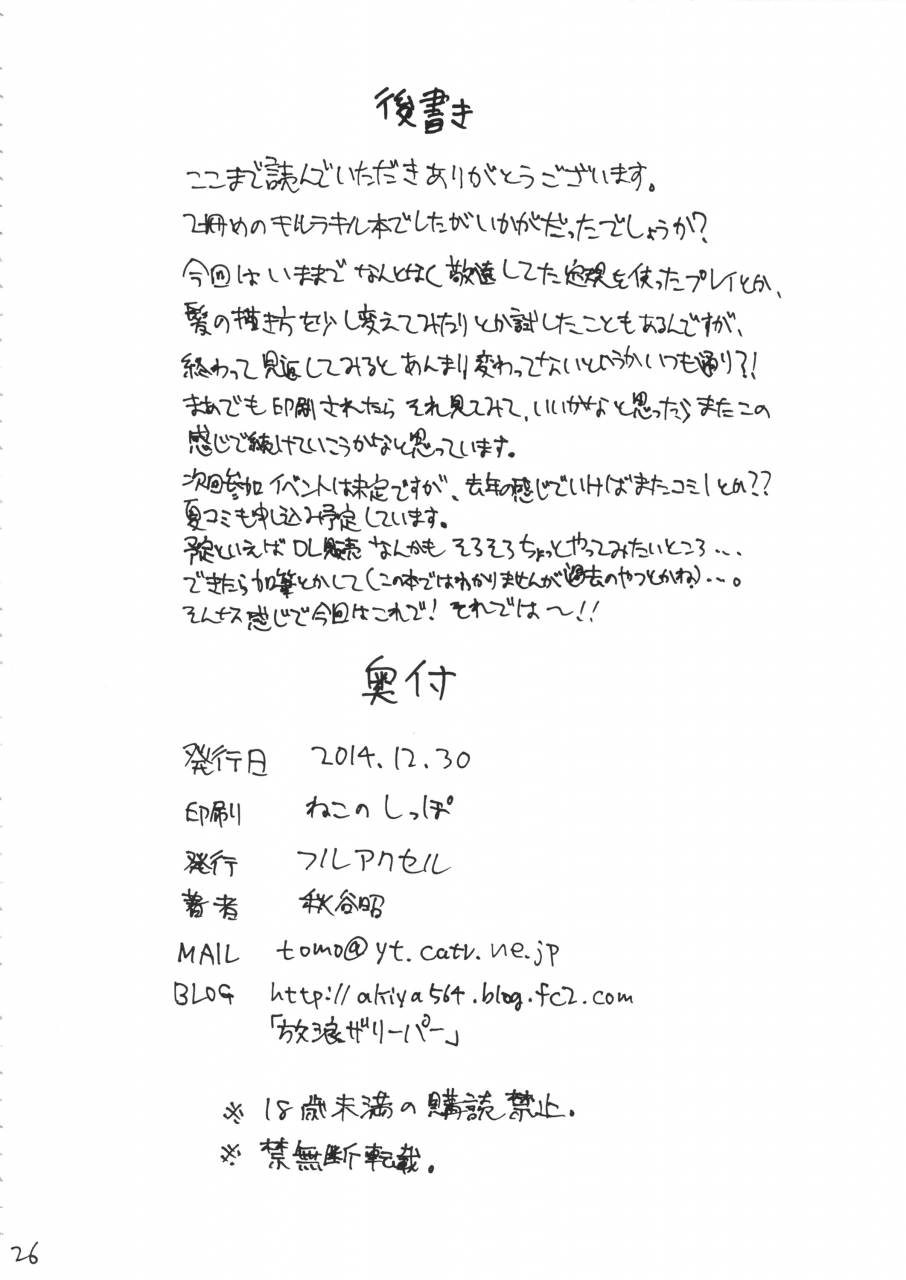 後書き
ここまで読んでいただきありがとうございます。
2冊めのキルラキル本でしたがいかがだったでしょうか?
今回はいままでなんとなく敬遠してた定規を使ったプレイとか、
髪の描き方を少し変えてみたりとか試したこともあるんですが、
終わって見返してみるとあんまり変わってないというかいつも通り?!
まぁでも印刷されたらそれ見てみて、いいかなと思ったらまたこの
感じで続けていこうかなと思っています。
次回参加イベントは未定ですが、去年の感じでいけばまたコミ1とか??
夏コミも申し込み予定しています。
予定といえばDL販売なんかもそろそろちょっとやってみたいところ...
できたら加筆とかして(この本ではわかりませんが過去のやつとかね)...。
そんなス感じで今回はこれで!それでは〜!!
奥付
発行日 2014.12.30
印刷 ねこのしっぽ
発行 フルアクセル
著者 秋谷昭
MAIL tomo@yt.catv.ne.jp
BLOG http://akiya564.blog.fc2.com
「放浪ザリーパー」
※ 18歳未満の購読禁止.
※ 禁無断転載.
26